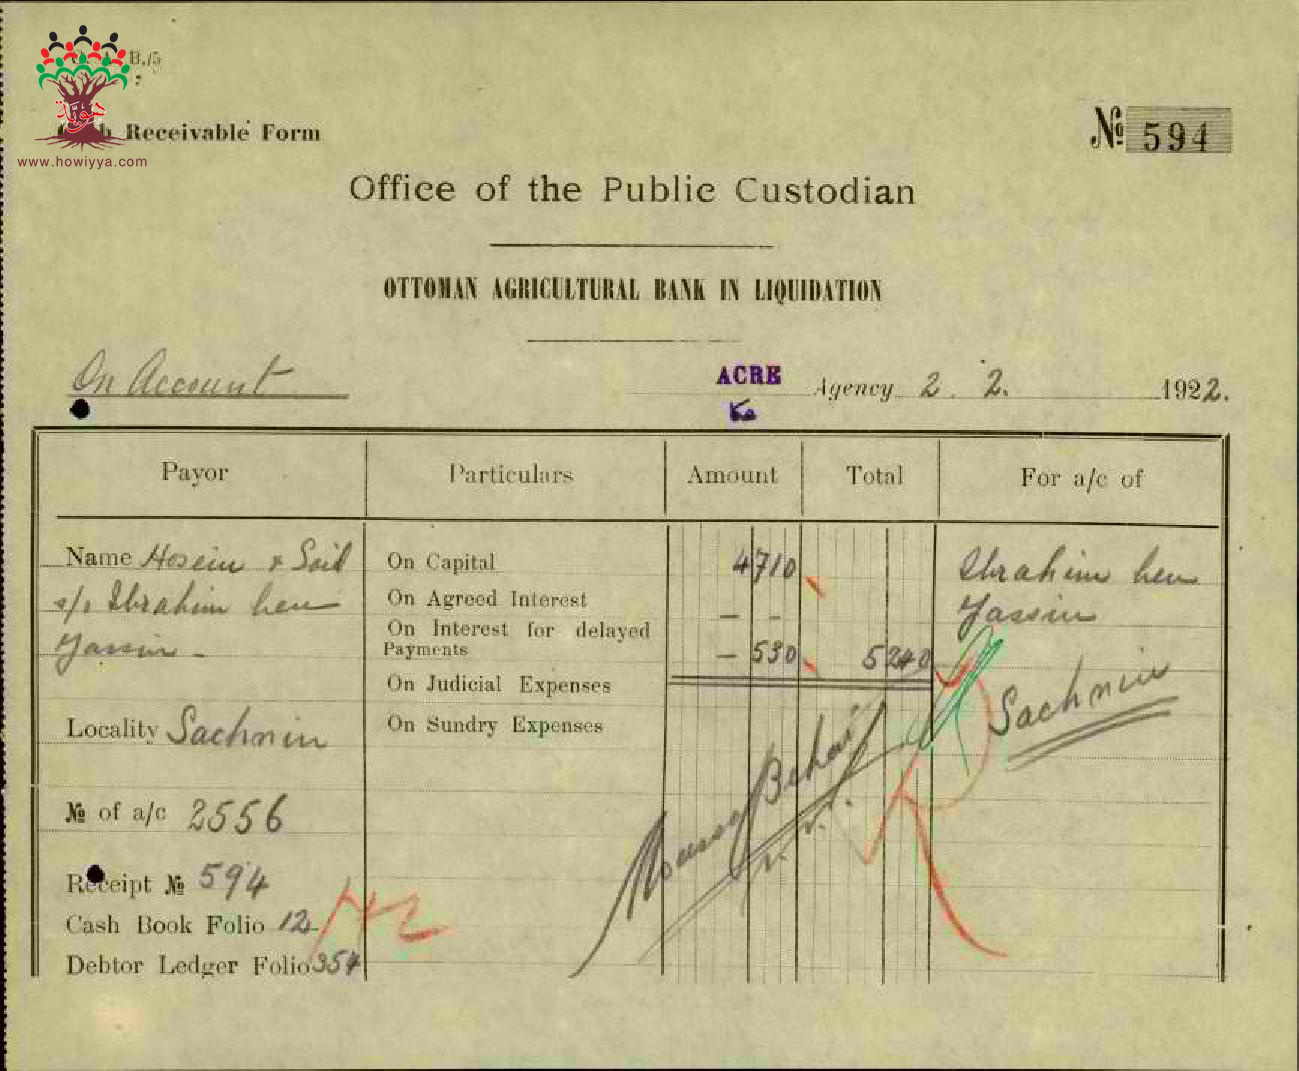 B./5
هوية
Receivable Form
www.howiyya.com
№ 594
Office of the Public Custodian
OTTOMAN AGRICULTURAL BANK IN LIQUIDATION
On Account
ACRE Agency 2. 2. 1922.
Payor Particulars Amount Total For a/c of
Name Hosein & Said On Capital 4710 Ibrahim ben
s/o Ibrahim ben On Agreed Interest — - Yassin
Yassin - On Interest for delayed Payments — 530 5240
On Judicial Expenses
Locality Sachnin On Sundry Expenses Sachnin
№ of a/c 2556
Receipt № 594
Cash Book Folio 12
Debtor Ledger Folio 354